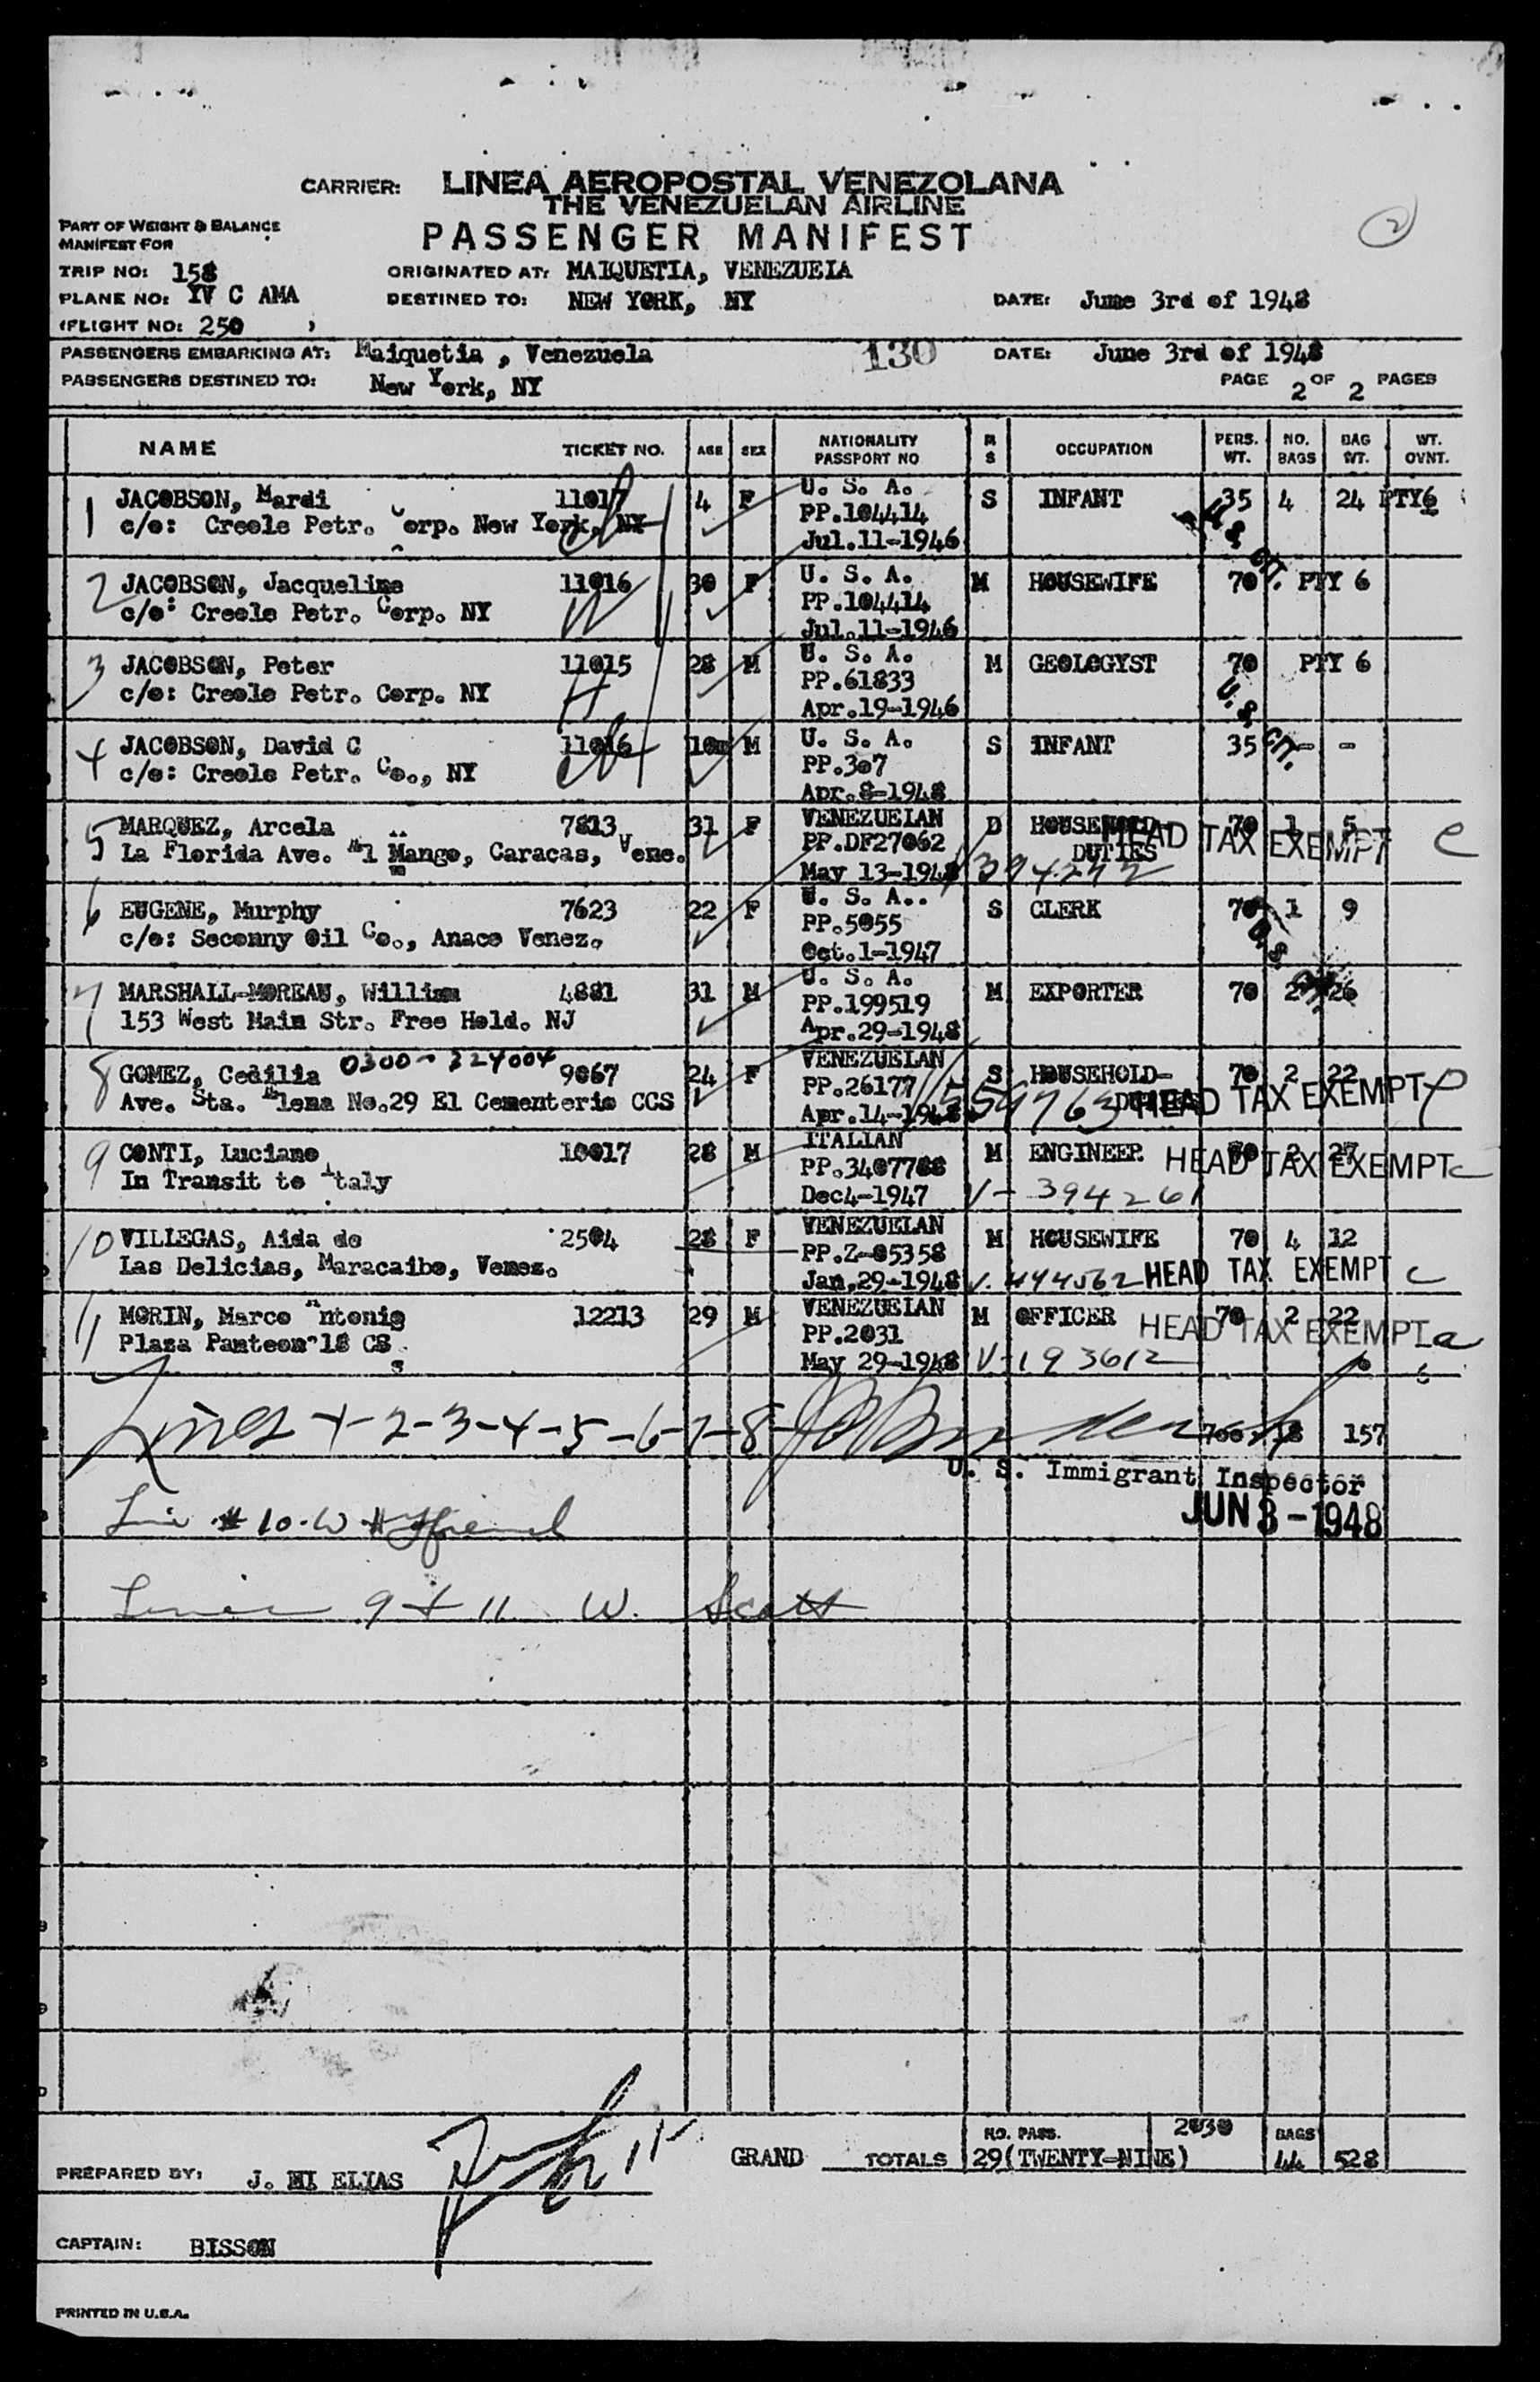 CARRIER: LINEA AEROPOSTAL VENEZOLANA
THE VENEZUELAN AIRLINE
PASSENGER MANIFEST
2
PART OF WEIGHT & BALANCE
MANIFEST FOR
TRIP NO: 158 ORIGINATED AT: MAIQUETIA, VENEZUELA
PLANE NO: YV C AMA DESTINED TO: NEW YORK, NY DATE: June 3rd of 1948
(FLIGHT NO: 250 )
PASSENGERS EMBARKING AT: Maiquetia , Venezuela 130 DATE: June 3rd of 1948
PASSENGERS DESTINED TO: New York, NY PAGE 2 OF 2 PAGES
NAME TICKET NO. AGE SEX NATIONALITY PASSPORT NO M S OCCUPATION PERS. WT. NO. BAGS BAG WT. WT. OVNT.
1 JACOBSON, Mardi 11017 4 F U. S. A. S INFANT 35 4 24 PTY6
c/o: Creole Petr. Corp. New York, NY PP.104414
Jul.11-1946 U. S. CIT.
2 JACOBSON, Jacqueline 11016 30 F U. S. A. M HOUSEWIFE 70 PTY 6
c/o: Creole Petr. Corp. NY PP.104414
Jul.11-1946
3 JACOBSON, Peter 11015 28 M U. S. A. M GEOLOGYST 70 PTY 6
c/o: Creole Petr. Corp. NY PP.61833
Apr.19-1946 U. S. CIT.
4 JACOBSON, David C 11016 10m M U. S. A. S INFANT 35 - -
c/o: Creole Petr. Co., NY PP.307
Apr.8-1948
5 MARQUEZ, Arcela 7813 31 F VENEZUELAN D HOUSEHOLD- 70 1 5
La Florida Ave. El Mango, Caracas, Vene. PP.DF27062 DUTIES HEAD TAX EXEMPT C
May 13-1948 V394272
6 EUGENE, Murphy 7623 22 F U. S. A.. S CLERK 70 1 9
c/o: Soconny Oil Co., Anaco Venez. PP.5055
Oct.1-1947 U. S. CIT.
7 MARSHALL-MOREAU, William 4881 31 M U. S. A. M EXPORTER 70 2 26
153 West Main Str. Free Hold. NJ PP.199519
Apr.29-1948
0300-324004
8 GOMEZ, Cecilia 9067 24 F VENEZUELAN S HOUSEHOLD- 70 2 22
Ave. Sta. Elena No.29 El Cementerio CCS PP.26177 V559763 DUTIES HEAD TAX EXEMPT
Apr.14-1948
9 CONTI, Luciano 10017 28 M ITALIAN M ENGINEER 70 2 27
In Transit to Italy PP.3407788 HEAD TAX EXEMPT C
Dec4-1947 V-394261
10 VILLEGAS, Aida de 2504 28 F VENEZUELAN M HOUSEWIFE 70 4 12
Las Delicias, Maracaibo, Venez. PP.Z-05358
Jan,29-1948 V.444562 HEAD TAX EXEMPT C
11 MORIN, Marco Antonio 12213 29 M VENEZUELAN M OFFICER 70 2 22
Plaza Panteon 18 CS PP.2031 HEAD TAX EXEMPT a
May 29-1948 V-193612
Lines 1-2-3-4-5-6-7-8- 700 18 157
U. S. Immigrant Inspector
JUN 3-1948
Line #10.W
Lines 9 + 11 W. Scott
GRAND TOTALS NO. PASS. 29(TWENTY-NINE) 2030 BAGS 44 528
PREPARED BY: J. MI ELIAS
CAPTAIN: BISSON
PRINTED IN U.S.A.